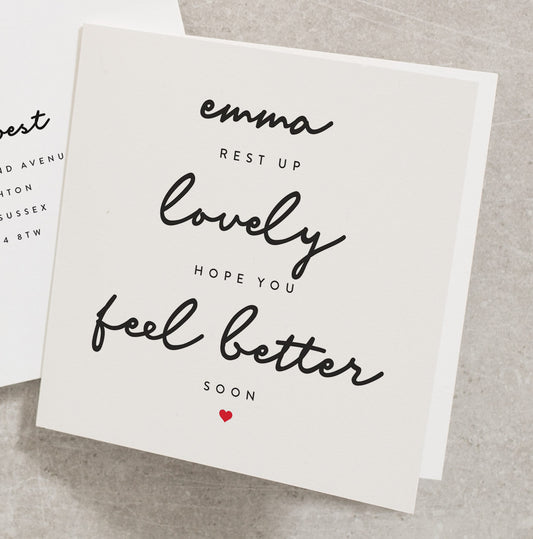 emma
REST UP
lovely
HOPE YOU
feel better
SOON
best
ND AVENU
HTON
SUSSEX
4 8TW